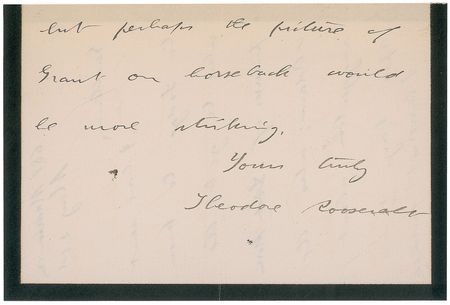 but perhaps the picture of
Grant on horseback would
be more striking.
Yours truly
Theodore Roosevelt